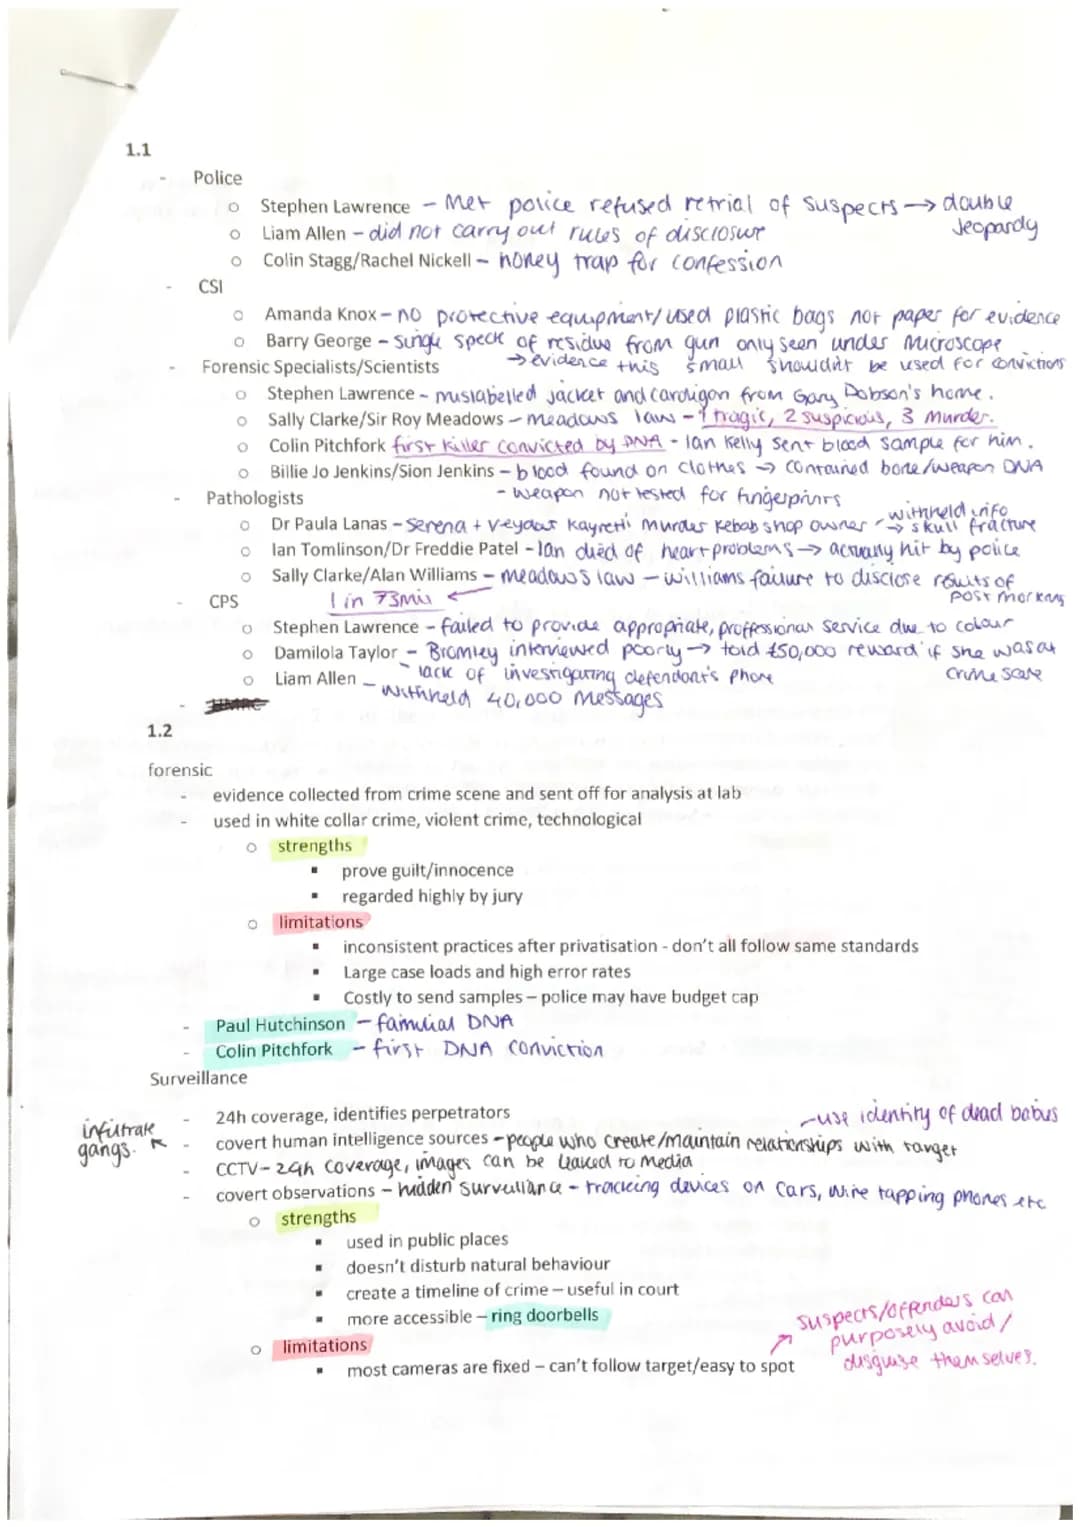 1.1
- Police
o Stephen Lawrence - Met police refused retrial of suspects → double Jeopardy
o Liam Allen - did not carry out rules of disclosure
o Colin Stagg/Rachel Nickell - honey trap for confession
- CSI
o Amanda Knox - no protective equipment/used plastic bags not paper for evidence
o Barry George - single speck of residue from gun only seen under microscope
→ evidence this small shouldn't be used for convictions
- Forensic Specialists/Scientists
o Stephen Lawrence - mislabelled jacket and cardigan from Gary Dobson's home.
o Sally Clarke/Sir Roy Meadows - meadows law - 1 tragic, 2 suspicious, 3 murder.
o Colin Pitchfork first killer convicted by DNA - Ian Kelly sent blood sample for him.
o Billie Jo Jenkins/Sion Jenkins - blood found on clothes → contained bone/weapon DNA
- weapon not tested for fingerprints
- Pathologists
o Dr Paula Lanas - Serena + Murder Kebab shop owner → withheld info skull fracture
o Ian Tomlinson/Dr Freddie Patel - Ian died of heart problems → actually hit by police
o Sally Clarke/Alan Williams - meadows law - williams failure to disclose results of post
- CPS 1 in 73mil ←
o Stephen Lawrence - failed to provide appropriate, proffessional service due to colour
o Damilola Taylor - Bromley interviewed poorly → told £50,000 reward if she was at crime scene
o Liam Allen - lack of investigating defendant's phone
- withheld 40,000 messages
- HMRC
1.2
forensic
- evidence collected from crime scene and sent off for analysis at lab
- used in white collar crime, violent crime, technological
o strengths
▪ prove guilt/innocence
▪ regarded highly by jury
o limitations
▪ inconsistent practices after privatisation - don't all follow same standards
▪ Large case loads and high error rates
▪ Costly to send samples – police may have budget cap
- Paul Hutchinson - familial DNA
- Colin Pitchfork - first DNA conviction
Surveillance
- 24h coverage, identifies perpetrators
- use identity of dead babies
infiltrate gangs.
- covert human intelligence sources - people who create/maintain relationships with target
- CCTV - 24h coverage, images can be leaked to media
- covert observations - hidden surveillance - tracking devices on cars, wire tapping phones etc
o strengths
▪ used in public places
▪ doesn't disturb natural behaviour
▪ create a timeline of crime – useful in court
▪ more accessible – ring doorbells
o limitations
▪ most cameras are fixed – can't follow target/easy to spot
↗ suspects/offenders can
purposely avoid/
disguise themselves.